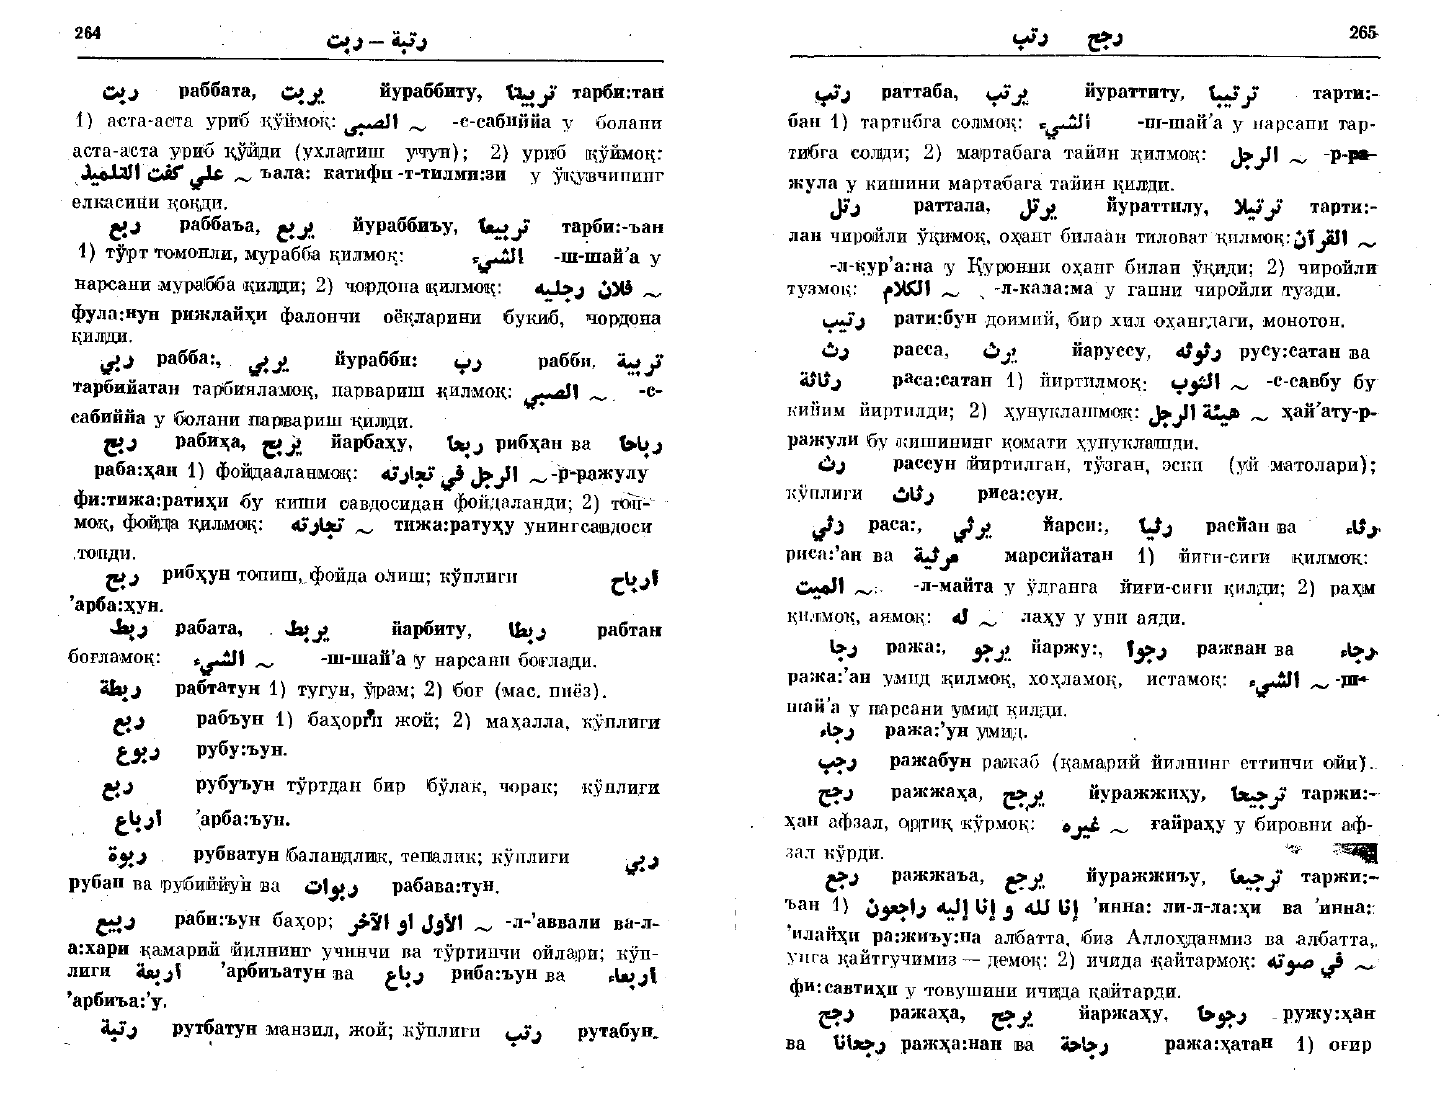 264
رتبة – ربت
ربت раббата, يربت йураббиту, تربيتا тарби:тан
1) аста-аста уриб қўймоқ: الصبي ~ -с-сабиййа у болани
аста-аста уриб қўйди (ухлатиш учун); 2) уриб қўймоқ:
علي كفت التلميذ ~ ъала: катифи-т-тилми:зи у ўқувчининг
елкасини қоқди.
ربع раббаъа, يربع йураббиъу, تربيعا тарби:-ъан
1) тўрт томонли, мурабба қилмоқ: الشيء -ш-шай’а у
нарсани мурабба қилди; 2) чордона қилмоқ: فلان رجليه ~
фула:нун рижлайҳи фалончи оёқларини букиб, чордона
қилди.
ربي рабба:, يربي йурабби: رب рабби, تربية
тарбийатан тарбияламоқ, парвариш қилмоқ: الصبي ~ -с-
сабиййа у болани парвариш қилди.
ربح рабиҳа, يربح йарбаҳу, ربحا рибҳан ва رباحا
раба:ҳан 1) фойдааланмоқ: الرجل في تجارته ~ -р-ражулу
фи:тижа:ратиҳи бу киши савдосидан фойдаланди; 2) топ-
моқ, фойда қилмоқ: تجارته ~ тижа:ратуҳу унингсавдоси
топди.
ربح рибҳун топиш, фойда олиш; кўплиги ارباح
’арба:ҳун.
ربط рабата, يربط йарбиту, ربطا рабтан
боғламоқ: الشيء ~ -ш-шай’а у нарсани боғлади.
ربطة рабтатун 1) тугун, ўрам; 2) боғ (мас. пиёз).
ربع рабъун 1) баҳорги жой; 2) маҳалла, кўплиги
ربوع рубу:ъун.
ربع рубуъун тўртдан бир бўлак, чорак; кўплиги
ارباع ’арба:ъун.
ربوة рубватун баландлик, тепалик; кўплиги ربي
рубан ва рубиййун ва ربوات рабава:тун.
ربيع раби:ъун баҳор; الأول او الآخر ~ -л-’аввали ва-л-
а:хари қамарий йилнинг учинчи ва тўртинчи ойлари; кўп-
лиги أربعة ’арбиъатун ва رباع риба:ъун ва أربعاء
’арбиъа:’у.
رتبة рутбатун манзил, жой; кўплиги رتب рутабун.
رجح رتب
265
رتب раттаба, يرتب йураттиту, ترتيبا тарти:-
бан 1) тартибга солмоқ: الشيء -ш-шай’а у нарсани тар-
тибга солди; 2) мартабага тайин қилмоқ: الرجل ~ -р-ра-
жула у кишини мартабага тайин қилди.
رتل раттала, يرتل йураттилу, ترتيلا тарти:-
лан чиройли ўқимоқ, оҳанг билаан тиловат қилмоқ: القرآن ~
-л-қур’а:на у Қуронни оҳанг билан ўқиди; 2) чиройли
тузмоқ: الكلام ~ -л-кала:ма у гапни чиройли тузди.
رتيب рати:бун доимий, бир хил оҳангдаги, монотон.
رث расса, يرث йаруссу, رثوثه русу:сатан ва
رثاثة раса:сатан 1) йиртилмоқ: الثوب ~ -с-савбу бу
кийим йиртилди; 2) ҳунуклашмоқ: هيئة الرجل ~ ҳай’ату-р-
ражули бу кишининг қомати ҳунуклашди.
رث рассун йиртилган, тўзган, эски (уй матолари);
кўплиги رثاث риса:сун.
رثي раса:, يرثي йарси:, رثيا расйан ва رثاء
риса:’ан ва مرثية марсийатан 1) йиғи-сиғи қилмоқ:
الميت ~ -л-майта у ўлганга йиғи-сиғи қилди; 2) раҳм
қилмоқ, аямоқ: له ~ лаҳу у уни аяди.
رجا ража:, يرجو йаржу:, رجوا ражван ва رجاء
ража:’ан умид қилмоқ, хоҳламоқ, истамоқ: الشيء ~ -ш-
шай’а у нарсани умид қилди.
رجاء ража:’ун умид.
رجب ражабун ражаб (қамарий йилнинг еттинчи ойи).
رجح ражжаҳа, يرجح йуражжиҳу, ترجيحا таржи:-
ҳан афзал, ортиқ кўрмоқ: غيره ~ ғайраҳу у бировни аф-
зал кўрди.
رجع ражжаъа, يرجع йуражжиъу, ترجيعا таржи:-
ъан 1) إنا لله و إنا إليه راجعون ’инна: ли-л-ла:ҳи ва ’инна:
’илайҳи ра:жиъу:на албатта, биз Аллоҳданмиз ва албатта,
унга қайтгучимиз — демоқ: 2) ичида қайтармоқ: في صوته ~
фи: савтиҳи у товушини ичида қайтарди.
رجح ражаҳа, يرجح йаржаҳу, رجوحا ружу:ҳан
ва رجحانا ражҳа:нан ва رجاحة ража:ҳатан 1) оғир